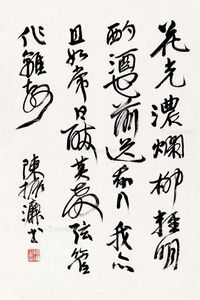 花光濃爛柳輕明
酌酒花前送我行我亦
且如常日醉莫教弦管
作離聲
陳振濂書